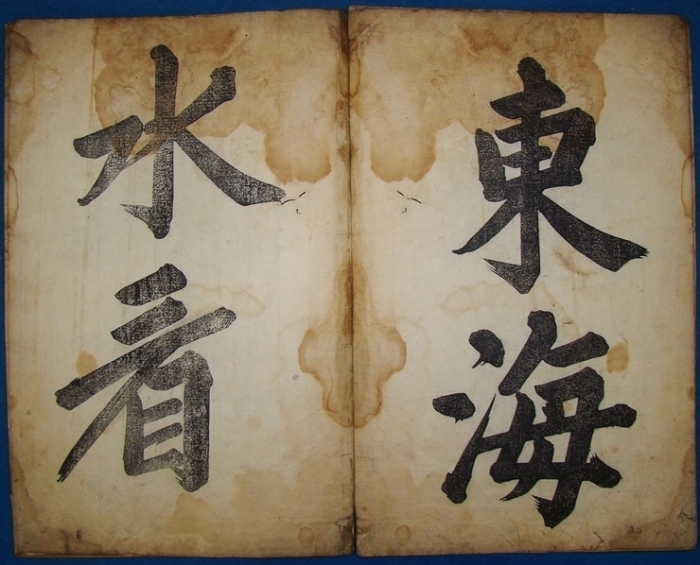 東海
水看